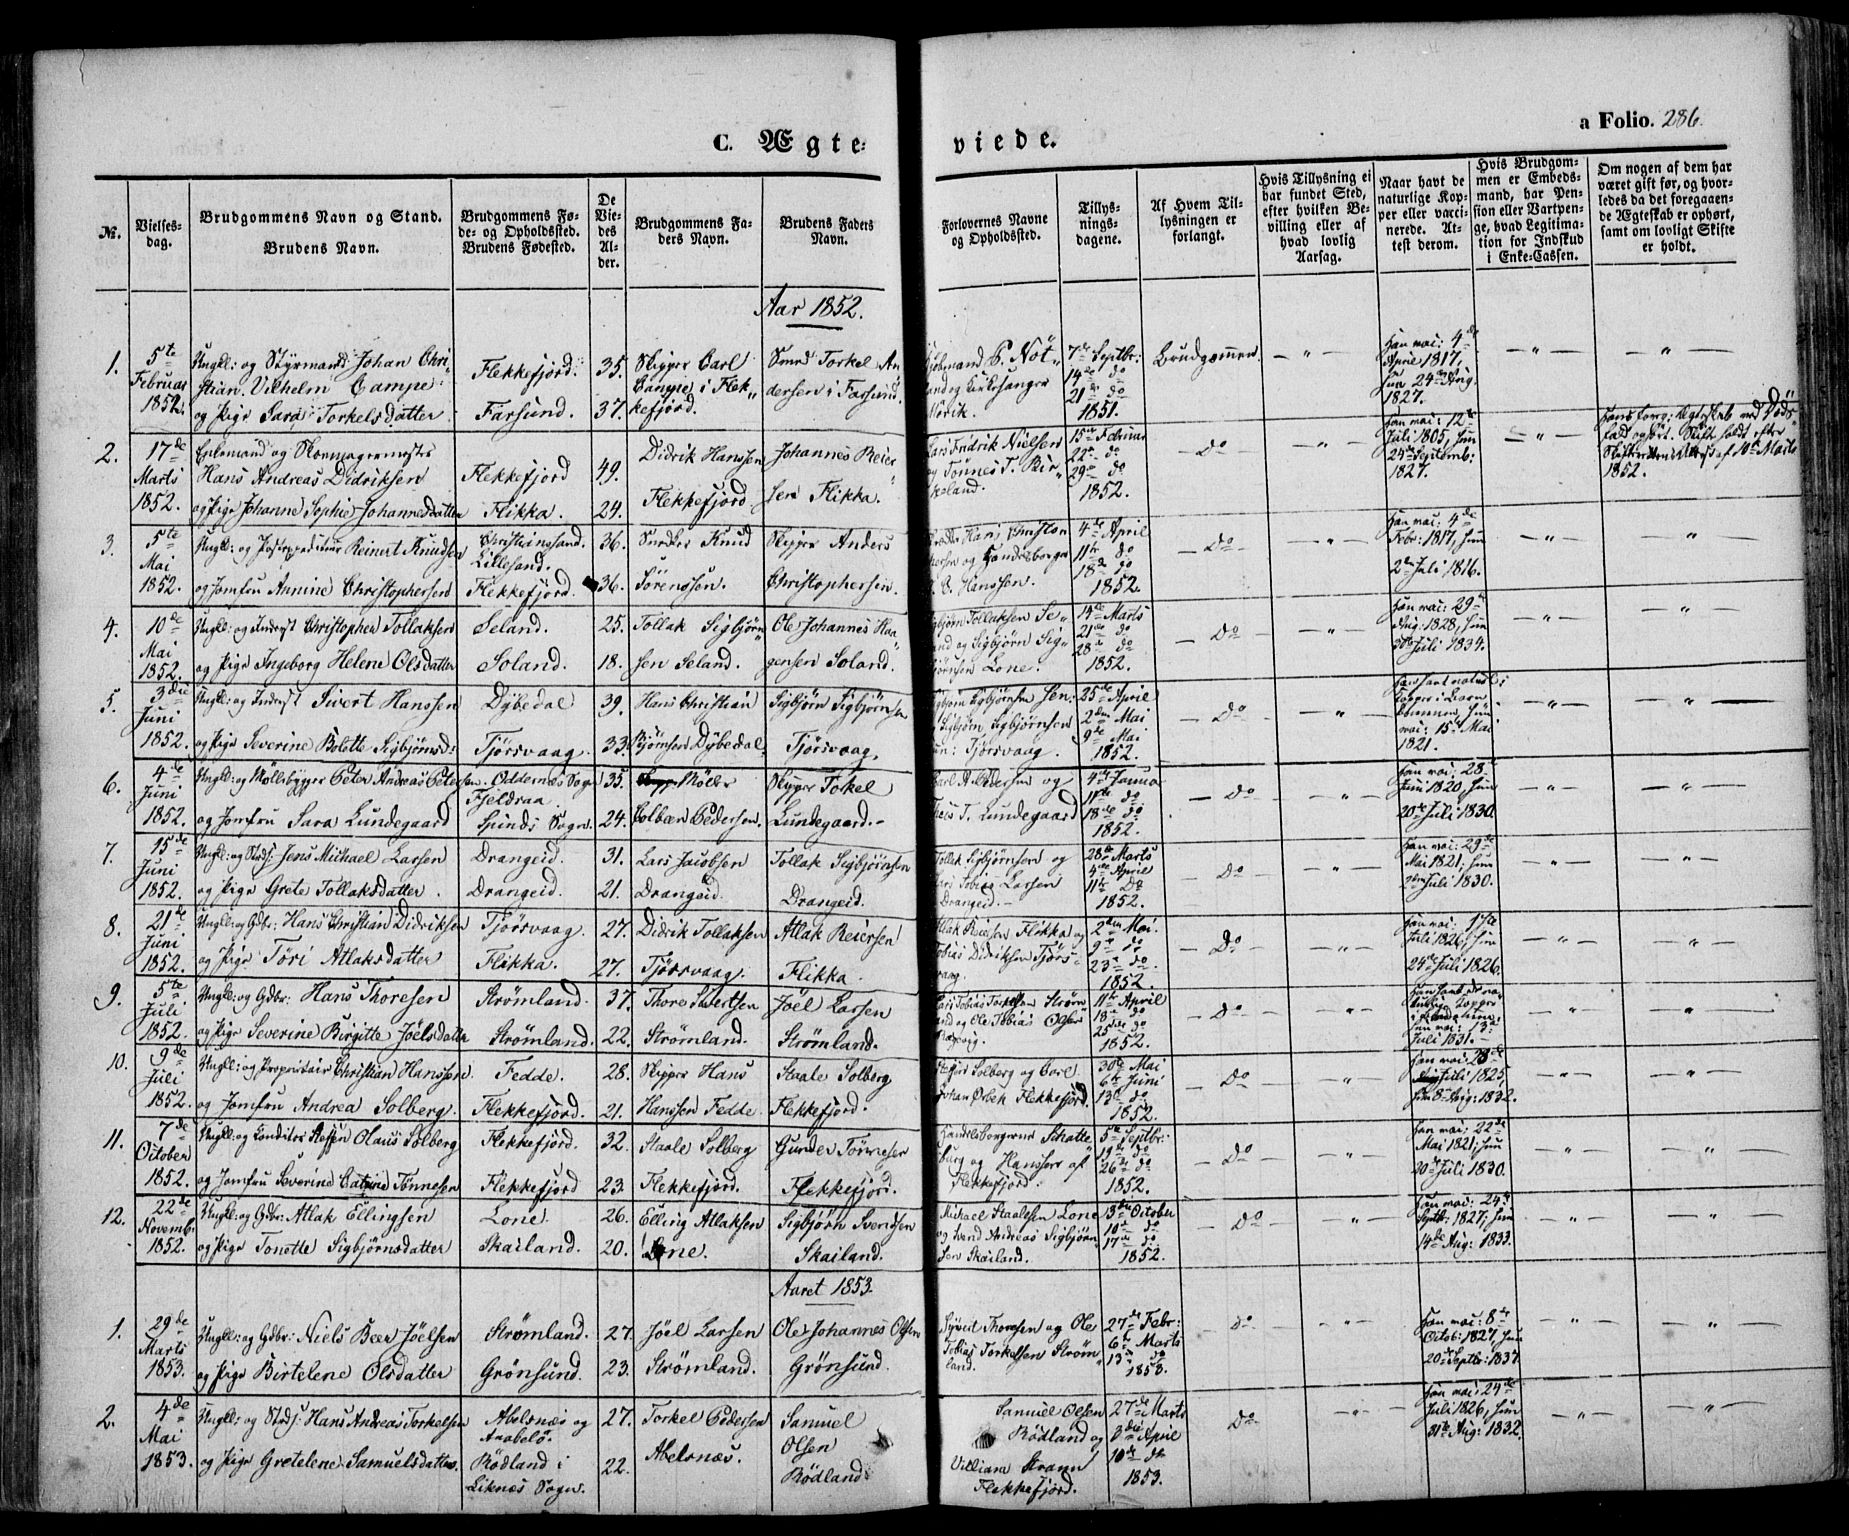 a Folio. 286.
C. Ægte-
viede.
№.
Vielses-
dag.
Brudgommens Navn og Stand.
Brudens Navn.
Brudgommens Fø-
de- og Opholdsted.
Brudens Fødested.
De
Vie-
des
Al-
der.
Brudgommens Fa-
ders Navn.
Brudens Faders
Navn.
Forlovernes Navne
og Opholdssted.
Tillys-
nings-
dagene.
Af Hvem Til-
lysningen er
forlangt.
Hvis Tillysning ei
har fundet Sted,
efter hvilken Be-
villing eller af
hvad lovlig
Aarsag.
Naar havt de
naturlige Kop-
per eller vacci-
nerede. At-
test derom.
Hvis Brudgom-
men er Embeds-
mand, har Pen-
sion eller Vartpen-
ge, hvad Legitima-
tion for Indskud
i Enke-Cassen.
Om nogen af dem har
været gift før, og hvor-
ledes da det foregaaen-
de Ægteskab er ophørt,
samt om lovligt Skifte
er holdt.
Aar 1852.
1.
5te
Februar
1852.
Ungkl: og Styrmand Johan Chri-
stian Vilhelm Campe
og Pige Sara Torkelsdatter
Flekkefjord.
Farsund.
35.
37.
Skipper Carl
Campe i Flek-
kefjord.
Smed Torkel An-
dersen i Farsund.
7de Septbr:
14de do
21de do
1851.
Brudgommen.
Han vac: 4de
April 1817,
hun 24de Aug.
1827.
2.
17de
Marts
1852.
Enkemand og Skomagermester
Hans Andreas Didriksen
og Pige Johanne Sophie Johannesdatter
Flekkefjord
Flikka.
49.
24.
Didrik Hanssen
Flekkefjord
Johannes Reier-
sen Flikka.
Lars Fredrik Nielsen
og Tønnes T. Bir-
keland.
15de Februar
22de do
29de do
1852.
Do
Han vac: 12te
Juli 1805, hun
24de Septemb:
1827.
Hans forrg: Ægteskab ved Døds-
fald ophørt. Skifte holdt efter
Skifterettens Attest af 10de Marts
1852.
3.
5te
Mai
1852.
Ungkl: og Postexpediteur Reinert Knudsen
og Jomfru Annine Christophersen
Christianssand.
Lillesand.
Flekkefjord.
36.
36.
Snedker Knud
Sörenssen.
Skipper Anders
Christophersen.
4de April
11te do
18de do
1852.
Do
Han vac: 4de
Febr: 1817, hun
2den Juli 1816.
4.
10de
Mai
1852.
Ungkl: og Inderst Christopher Tollaksen
og Pige Ingeborg Helene Olsdatter
Seland.
Soland.
25.
18.
Tollak Sigbjørn-
sen Seland.
Ole Johannes Haa-
gensen Soland.
Sigbjørn Tollaksen Se-
land og Sigbjørn Sig-
bjørnsen Lone.
14de Marts
21de do
28de do
1852.
Do
Han vac: 29de
Aug: 1828, hun
30te Juli 1834.
5.
3die
Juni
1852.
Ungkl: og Inderst Sivert Hanssen
og Pige Severine Bolette Sigbjørnsd:
Dybedal
Tjørsvaag.
39.
33.
Hans Christian
Bjørnsen Dybedal
Sigbjørn Sigbjørnsen
Tjørsvaag.
Sigbjørn Sigbjørnsen Sen:
Sigbjørn Sigbjørnsen
Jun: Tjørsvaag.
25de April
2den Mai
9de Mai
1852.
Do
Han havt naturl:
Kopper i Barn-
dommen, hun
vac: 15de Mai
1821.
6.
4de
Juni
1852.
Ungkl: og Møllebygger Peter Andreas Petersen.
og Jomfru Sara Lundegaard
Oddernes Sogn
Fjeldraa.
Spinds Sogn.
35.
24.
Møller
Colbæn Pedersen.
Skipper Torkel
Lundegaard.
Carl A. Andersen og
T. Lundegaard
4de Januar
11te do
18de do
1852.
Do
Han vac: 28de
Juni 1820, hun
20de Juli 1830.
7.
15de
Juni
1852.
Ungkl: og Strds: Jens Michael Larsen
og Pige Grete Tollaksdatter.
Drangeid.
Drangeid.
31.
21.
Lars Jacobsen
Drangeid.
Tollak Sigbjørnsen
Drangeid.
Tollak Sigbjørnsen og
Lars Tobias Larsen
Drangeid.
28de Marts
4de April
11te Do
1852.
Do
Han vac: 29de
Mai 1821, hun
2den Juli 1830.
8.
21de
Juni
1852.
Ungkl: og Gdbr: Hans Christian Didriksen
og Pige Töri Atlaksdatter
Tjørsvaag.
Flikka.
27.
27.
Didrik Tollaksen
Tjørsvaag.
Atlak Reiersen
Flikka.
Atlak Reiersen Flikka og
Tobias Didriksen Tjørs-
vaag.
2den Mai.
9de do
23de do
1852.
Do
Han vac: 17de
Juli 1826, hun
24de Juli 1826.
9.
5te
Juli
1852.
Ungkl: og Gdbr: Hans Thoresen
og Pige Severine Birgitte Joëlsdatter
Strømland.
Strømland.
37.
22.
Thore Sivertsen
Strømland.
Joël Larsen
Strømland.
Lars Tobias Torkelsen Strøm-
land og Ole Tobias Olsen
11te April
18de do
25de do
1852.
Do
Han havt de na-
turlige Kopper
i Barndommen,
hun vac: 13de
Juli 1831.
10.
9de
Juli
1852.
Ungkl: og Proprietair Christian Hanssen
og Jomfru Andrea Solberg.
Fedde.
Flekkefjord.
28.
21.
Skipper Hans
Hanssen Fedde.
Staale Solberg
Flekkefjord.
Solberg og Carl
Johan Ørbek Flekkefjord.
30te Mai
6te Juni
13de do
1852.
Do
Han vac: 28de
Juli 1825,
hun 8de Aug: 1832.
11.
7de
October
1852.
Ungkl: og Conditor Steffen Olaus Solberg
og Jomfru Severine Catrine Tønnesen
Flekkefjord.
Flekkefjord
32.
23.
Staale Solberg
Flekkefjord.
Gunder Tönnesen
Flekkefjord.
Handelsborgerne Schatte-
burg og Hanssen af
Flekkefjord.
5te Septbr:
19de do
26de do
1852.
Do
Han vac: 22de
Mai 1821, hun
20de Juli 1830.
12.
22de
Novemb:
1852.
Ungkl: og Gdbr: Atlak Ellingsen
og Pige Tonette Sigbjørnsdatter
Lone.
Skailand.
26.
20.
Elling Atlaksen
Lone.
Sigbjørn Svendsen
Skailand.
Michael Staalesen Lone
og Svend Andreas Sigbjørn-
sen Skailand.
3die October
10de do
17de do
1852.
Do
Han vac: 24de
Septb: 1827, hun
14de Aug: 1833.
Aaret 1853.
1.
29de
Marts
1853.
Ungkl: og Gdbr: Niels Beer Joëlsen
og Pige Birtelene Olsdatter
Strømland.
Grønsund.
27.
23.
Joël Larsen
Strømland.
Ole Johannes Olsen
Grönsund.
Syvert Thoresen og Ole
Tobias Torkelsen Strøm-
land.
27de Febr:
6te Marts
13de do
1853.
Do
Han vac: 8de
Octob: 1827, hun
20de Septbr: 1837.
2.
4de
Mai
1853.
Ungkl: og Strds: Hans Andreas Torkelsen
og Pige Gretelene Samuelsdatter.
Abelsnæs og
Anabelø.
Rödland i
Liknes Sogn.
27.
22.
Torkel Pedersen
Abelsnæs.
Samuel
Olsen
Rödland.
Samuel Olsen
Rödland og
Villiam Strann
Flekkefjord.
27de Marts
3die April
10de do
1853.
Do
Han vac: 24de
Juli 1826, hun
31te Aug: 1832.